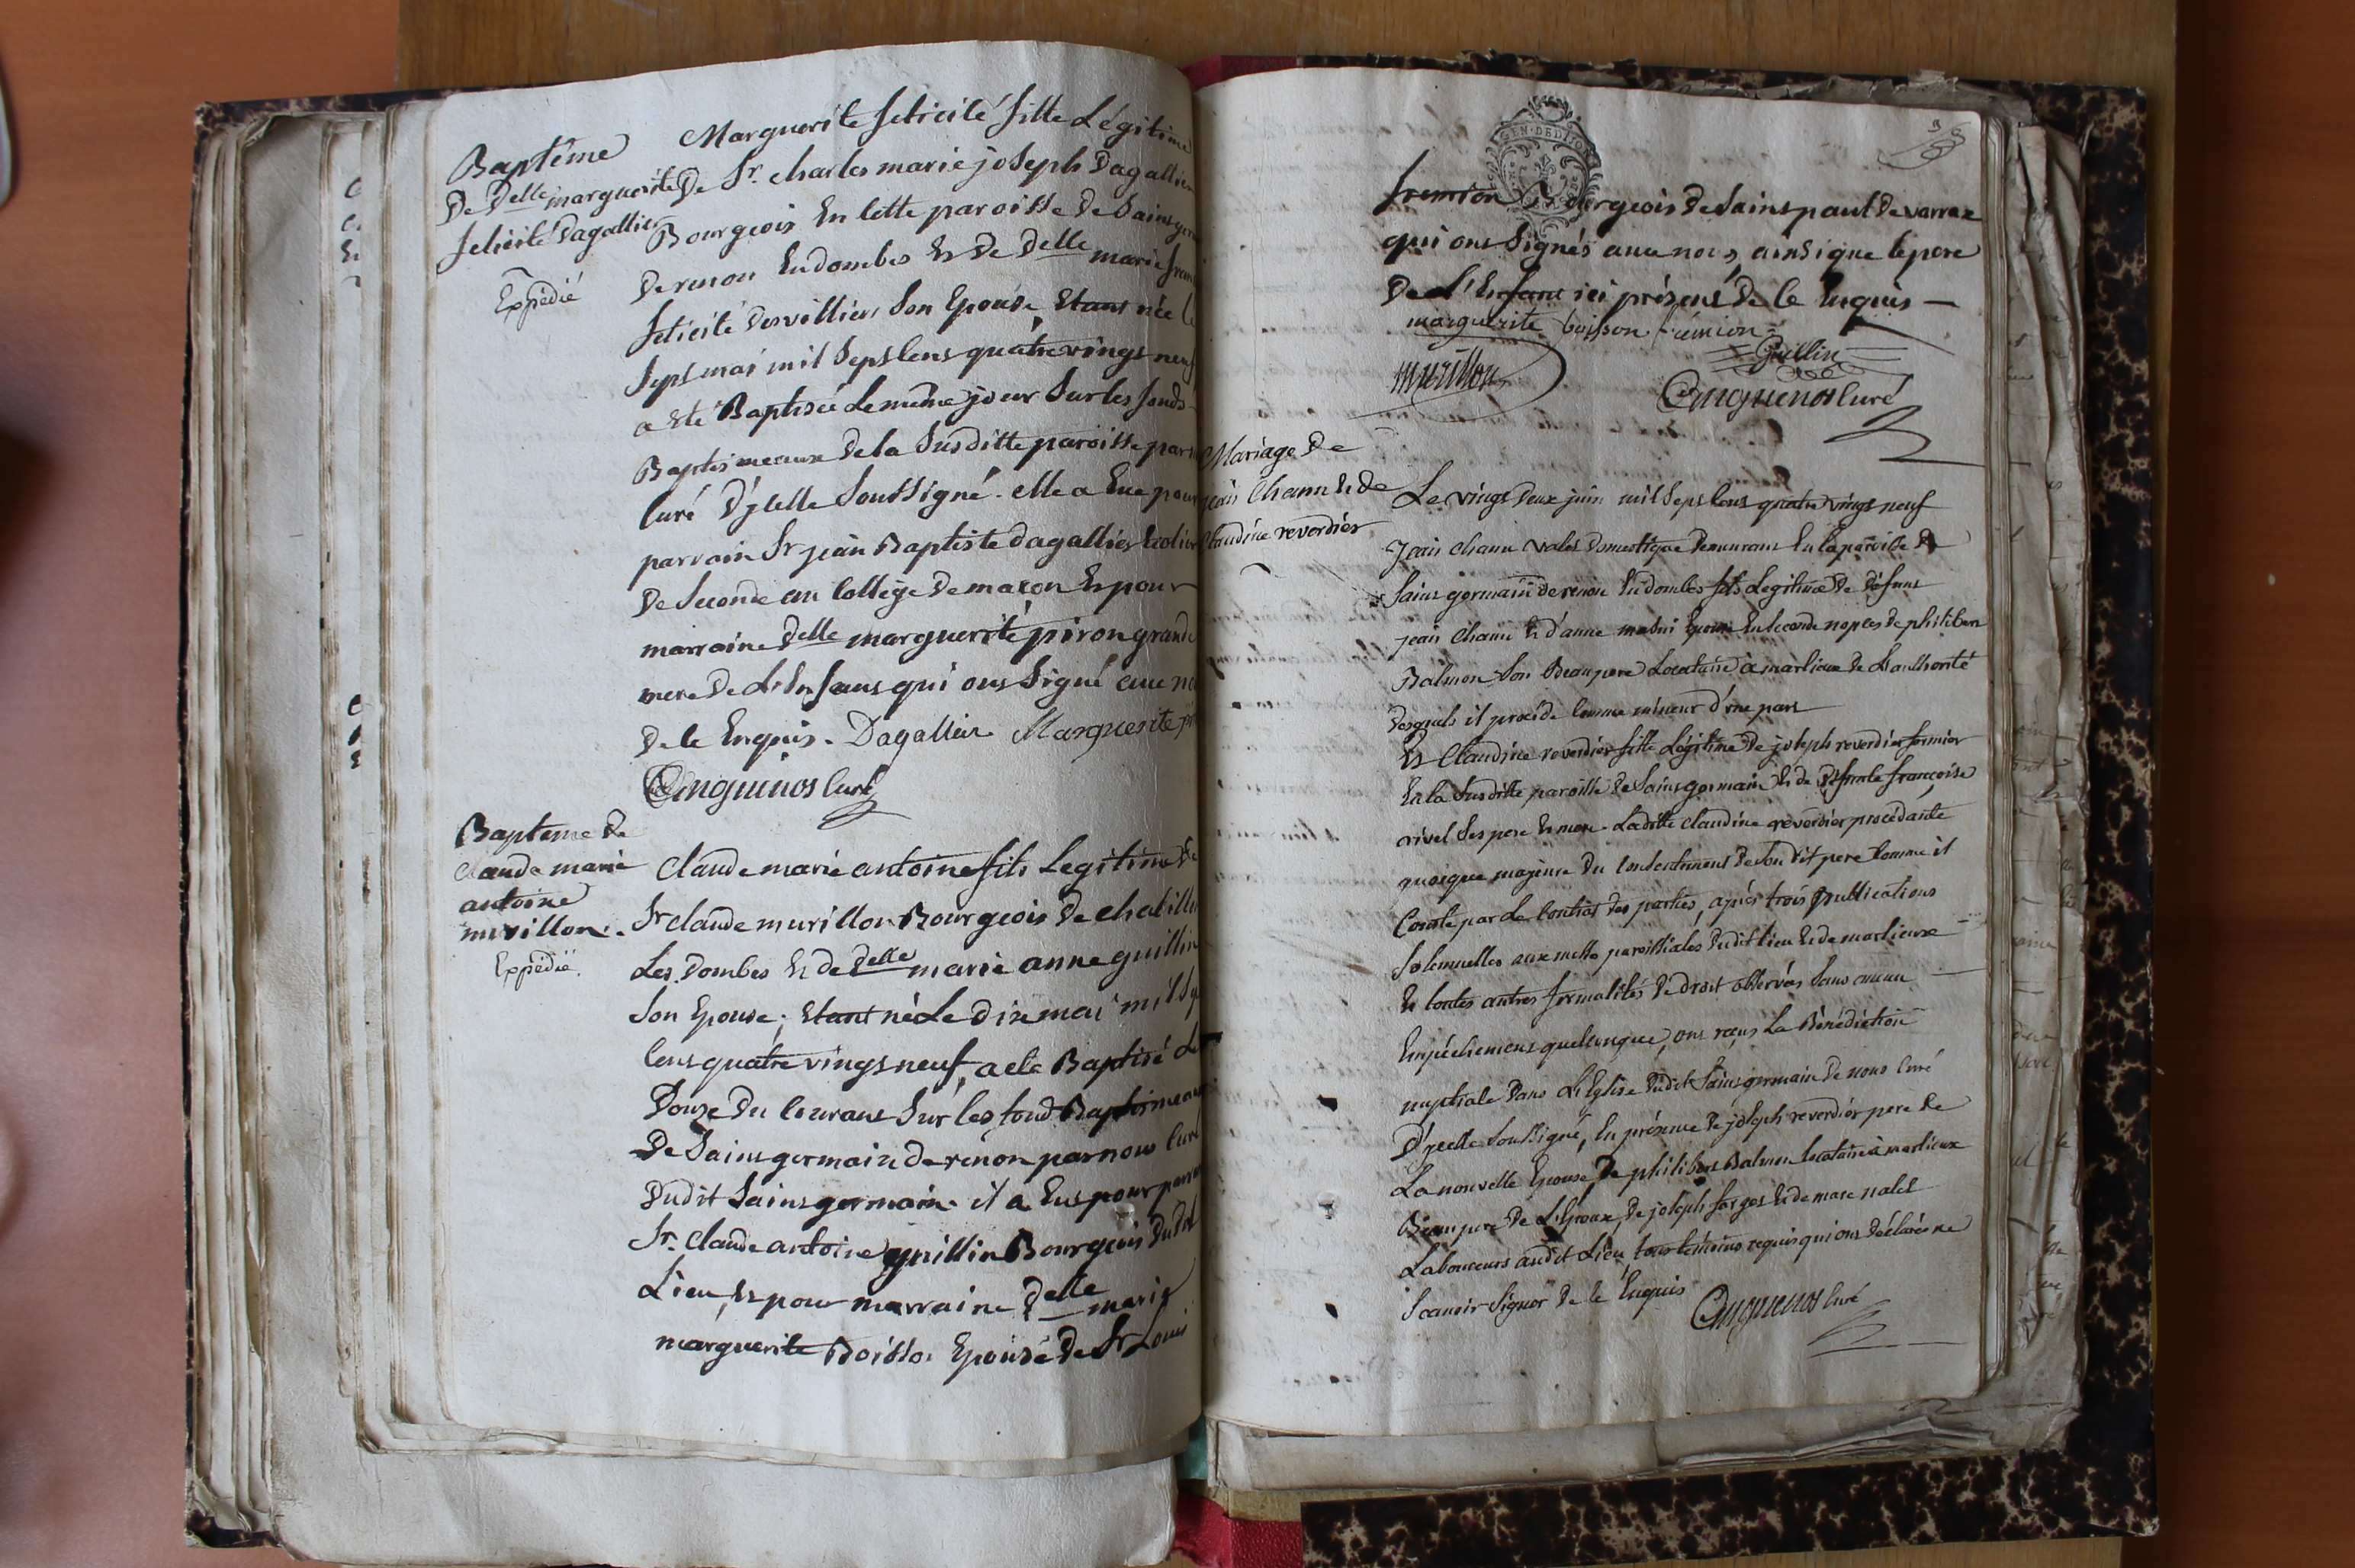 Baptême
De Delle marguerite
felicité Dagallier
Expédié
Marguerite felicité fille Légitime
De Sr. charles marie joseph Dagallier
Bourgeois En cette paroisse de Saint germ
De renon En dombes Et De Delle marie fran
felicité Desvilliers Son Epouse, Etant née le
Sept mai mil Sept Cens quatre vingt neuf
a été Baptisée Le même jour Sur les fonds
Baptismeaux de la Susditte paroisse par
Curé D'ycelle Soussigné. elle a Eue pour
parrain Sr jean Baptiste dagallier Ecolier
De Seconde au College De macon Et pour
marraine Delle marguerite piron grande
mere De L'Enfant qui ont Signé avec no
De ce Enquis. Dagallier Marguerite pi
Cinquinos Curé
Bapteme De
claude marie
antoine
murillon.
Expédié.
Claude marie antoine fils Legitime De
Sr claude murillon Bourgeois De chatillon
Les Dombes Et de Delle marie anne guillin
Son Epouse, Etant né Le dix mai mil Sept
Cens quatre vingt neuf, a ete Baptisé Le
Douze Du Courant Sur les fond Baptismeaux
De Saint germain De renon par nous Curé
Dudit Saint germain. il a Eut pour parrain
Sr. Claude antoine guillin Bourgeois Dudit
Lieu, Et pour marraine Delle marie
marguerite Boisson Epouse De Sr Louis
GEN. DE DIJON
fremion Bourgeois De Saint paul De varrax
qui ont Signés avec nous, ainsi que le pere
De L'Enfant ici présent De ce Enquis —
marguerite boisson fremion
murillon
Guillin
Cinquinos Curé
Mariage De
jean Chanu Et de
Claudine reverdier
Le vingt Deux juin mil Sept Cens quatre vingt neuf
Jean chanu valet Domestique Demeurant En la paroisse De
Saint germain De renon En dombes fils Legitime De défunt
jean Chanu Et d'anne Epouse En Seconde noples De philibert
Balmon Son Beaupere Locataire à marlieux De L'authorité
Desquels il procéde Comme mineur d'une part
Et Claudine reverdier fille Légitime De joseph reverdier fermier
En la Susditte paroisse De Saint germain Et de Defunte françoise
nivel Ses pere Et mere. Laditte claudine reverdier procédante
quoique majeure Du Consentement De Son dit pere Comme il
Conste par Le Contrat Des parties, après trois publications
Solemnelles aux messes paroissiales Dudit lieu Et de marlieux
Et toutes autres formalités De droit observées Sans aucun
Empéchement quelconque, ont reçus La Bénédiction
nuptiale Dans L'Eglise Dudit Saint germain De nous Curé
D'ycelle Soussigné, En présence De joseph reverdier pere De
La nouvelle Epouse, De philibert Balmon locataire à marlieux
Beaupere De L'Epoux, De joseph farges Et de marc nalet
Laboureurs audit Lieu, tous témoins requis qui ont Déclarés ne
Scavoir Signer De ce Enquis
Cinquinos Curé